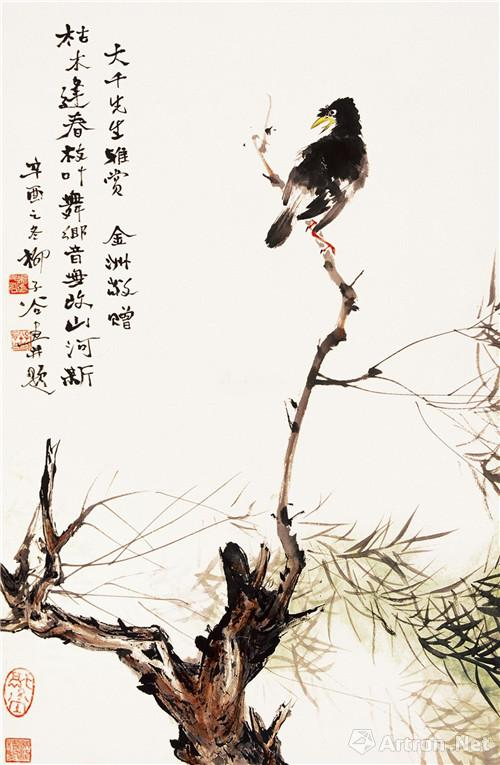 大千先生雅赏 金洲敬赠
枯木逢春枝叶舞鄉音無改山河新
辛酉之冬柳子谷画并题
Artron.Net